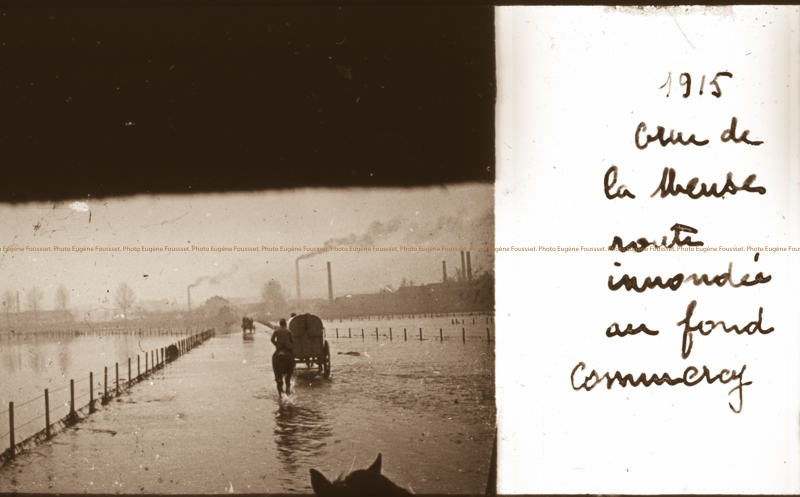 1915
Crue de
la Meuse
route
innondée
au fond
Commercy
Photo Eugène Fousset. Photo Eugène Fousset. Photo Eugène Fousset. Photo Eugène Fousset. Photo Eugène Fousset. Photo Eugène Fousset. Photo Eugène Fousset. Photo Eugène Fousset. Photo Eugène Fousset. Photo Eugène Fousset. Photo Eugène Fousset.